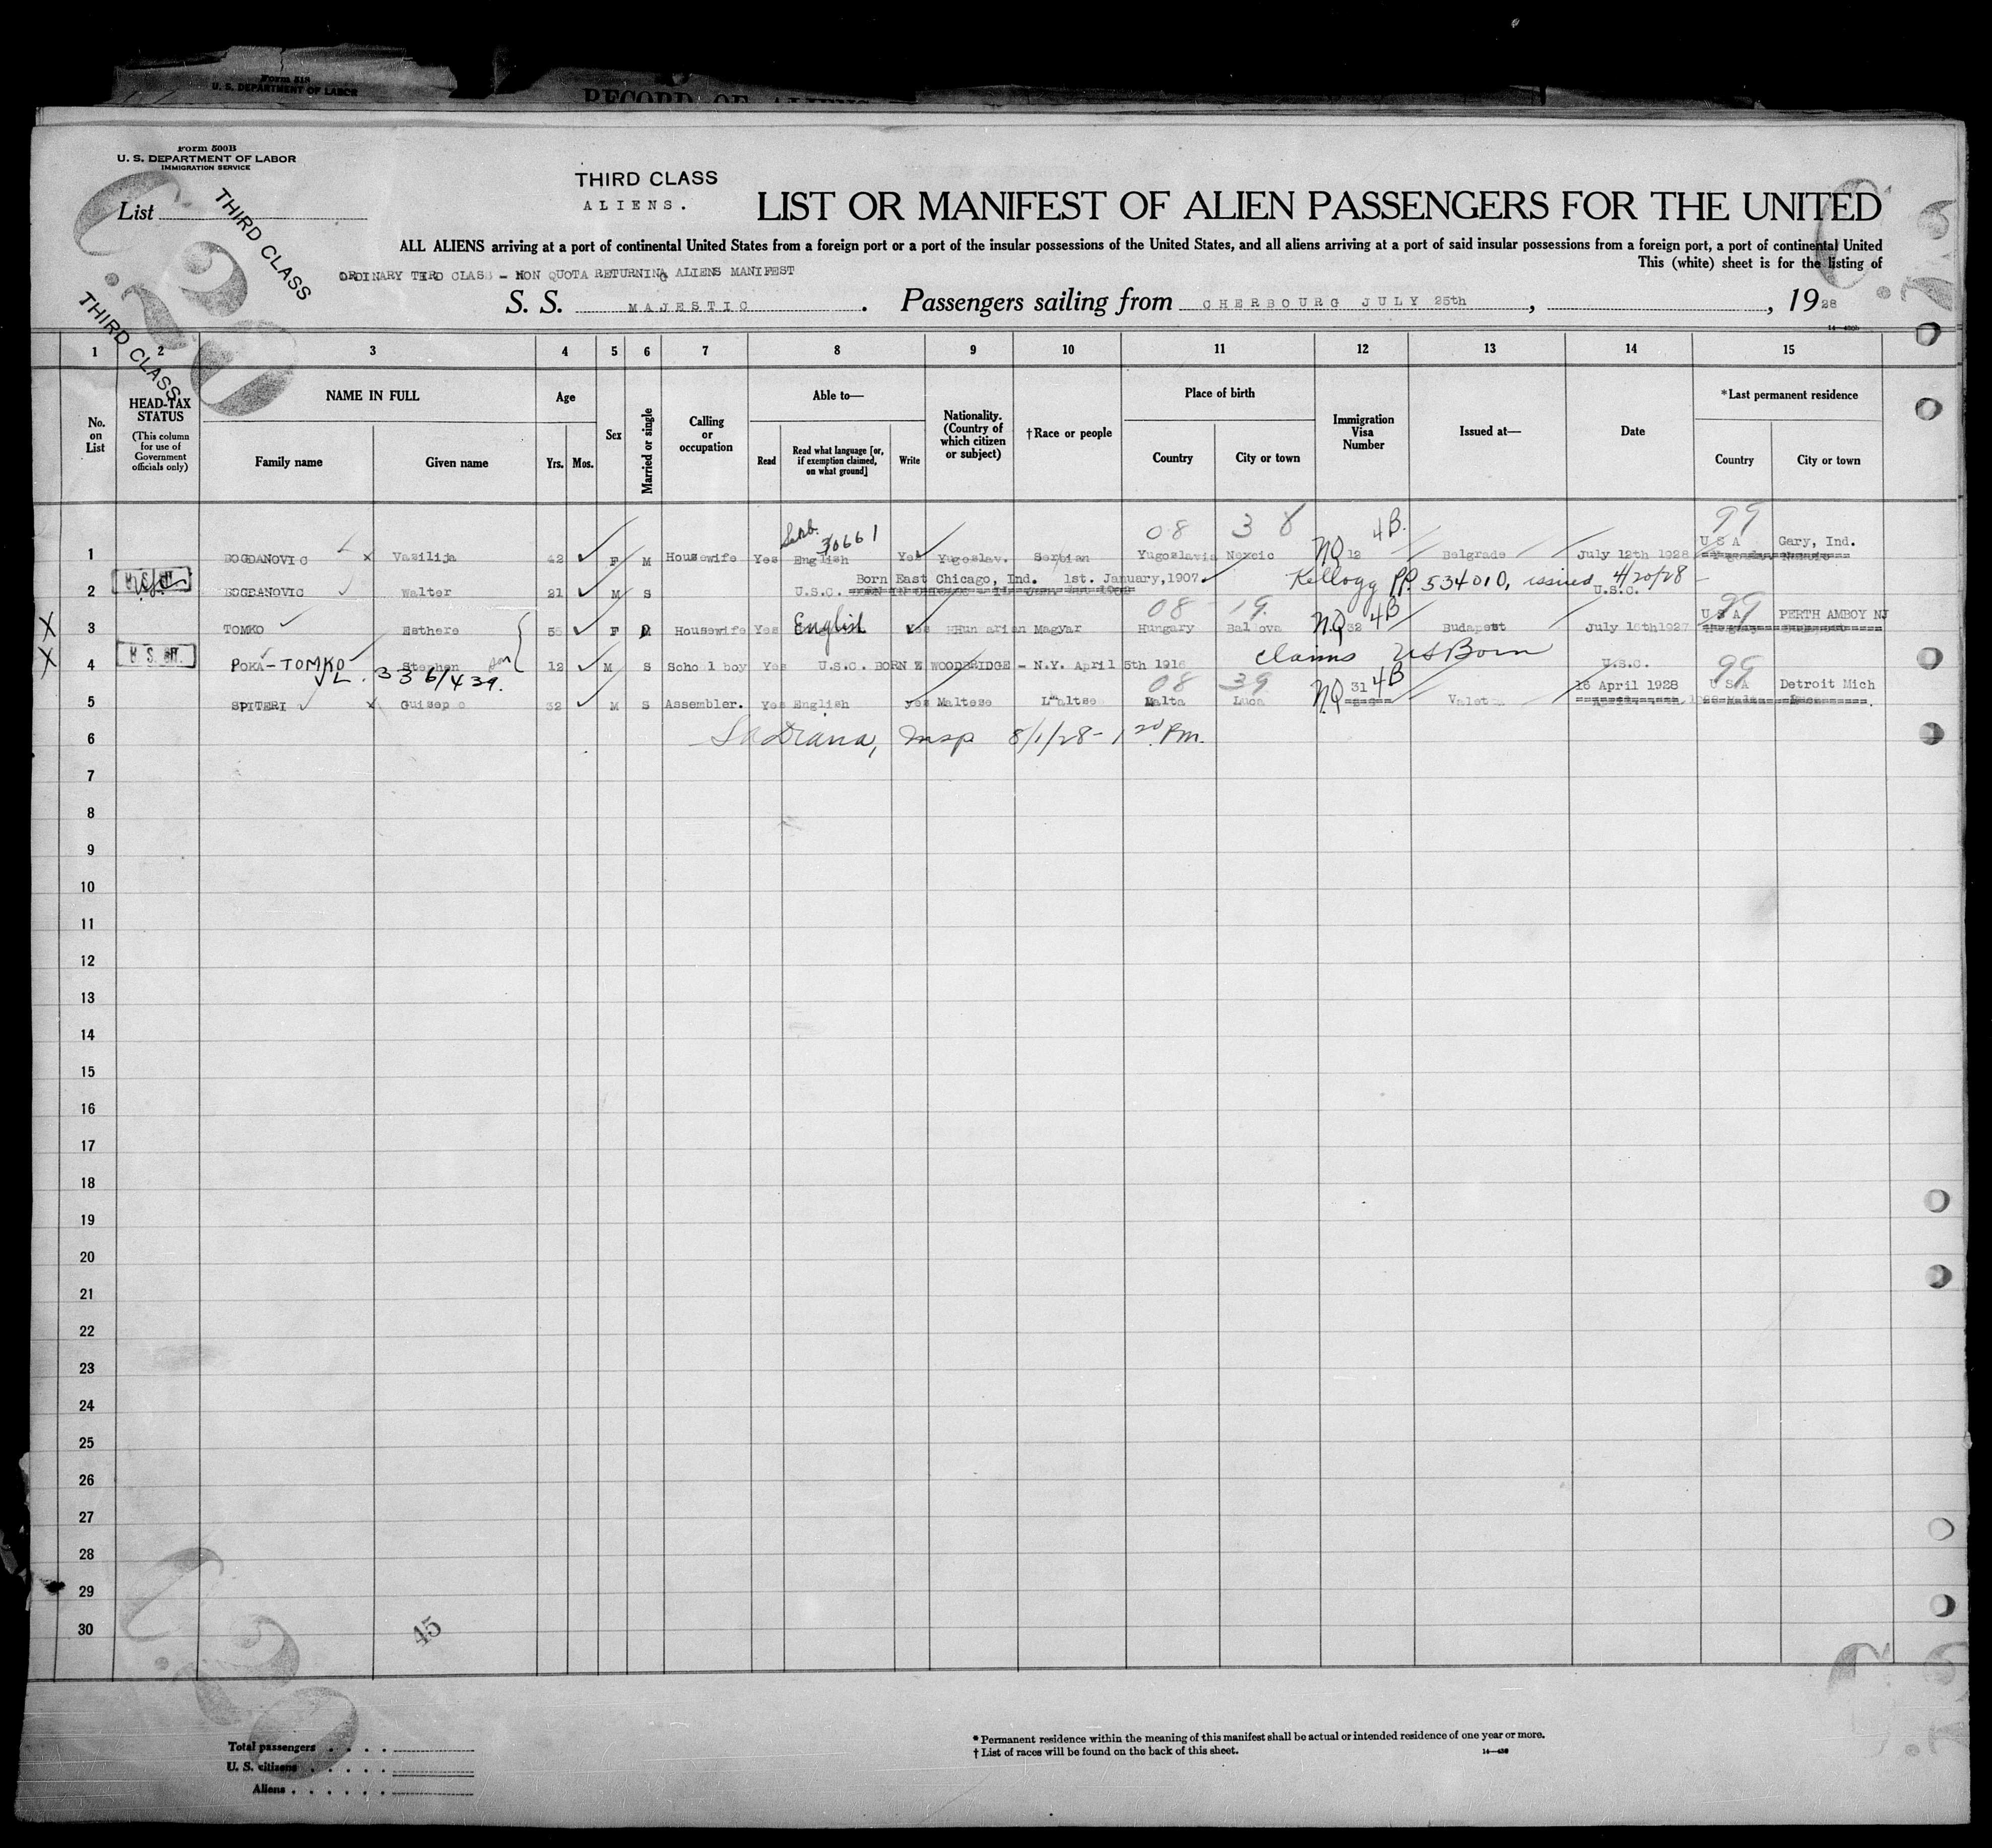 Form 518
U. S. DEPARTMENT OF LABOR
RECORD OF ALIENS
Form 500B
U. S. DEPARTMENT OF LABOR
IMMIGRATION SERVICE
List
THIRD CLASS
THIRD CLASS
THIRD CLASS
ALIENS.
LIST OR MANIFEST OF ALIEN PASSENGERS FOR THE UNITED
ALL ALIENS arriving at a port of continental United States from a foreign port or a port of the insular possessions of the United States, and all aliens arriving at a port of said insular possessions from a foreign port, a port of continental United
This (white) sheet is for the listing of
ORDINARY THRD CLASS - NON QUOTA RETURNING ALIENS MANIFEST
S. S. MAJESTIC. Passengers sailing from CHERBOURG JULY 25th, , 1928
1 2 3 4 5 6 7 8 9 10 11 12 13 14 15
No. on List
HEAD-TAX STATUS
(This column for use of Government officials only)
NAME IN FULL
Family name
Given name
Age
Yrs. Mos.
Sex
Married or single
Calling or occupation
Able to—
Read
Read what language [or, if exemption claimed, on what ground]
Write
Nationality. (Country of which citizen or subject)
†Race or people
Place of birth
Country
City or town
Immigration Visa Number
Issued at—
Date
*Last permanent residence
Country
City or town
30661 08 38 4B. 99
U S A Gary, Ind.
1 BOGDANOVIC x Vasilija 42 F M Housewife Yes English Yes Yugoslav. Serbian Yugoslavia NQ 12 Belgrade July 12th 1928
Born East Chicago, Ind. 1st. January, 1907. Kellogg PP. 534010, issued 4/20/28 -
2 BOGDANOVIC Walter 21 M S U.S.C. U.S.C.
08 19. 4B 99
U S A PERTH AMBOY NJ
X 3 TOMKO Esthere 55 F M Housewife Yes English Yes Magyar Hungary NQ 32 Budapest
claims US Born
X 4 POKA-TOMKO Stephen son 12 M S Scho l boy Yes U.S.C. BORN E WOODBRIDGE - N.Y. April 5th 1916 U.S.C. 99
336/439.
08 39 31 4B 16 April 1928 U S A Detroit Mich
5 SPITERI x Guisep e 32 M S Assembler. Yes English yes Maltese Maltse Malta Luca NQ
6 Insp 8/1/28 - 1 20 P.m.
7
8
9
10
11
12
13
14
15
16
17
18
19
20
21
22
23
24
25
26
27
28
29
30
45
Total passengers
U. S. citizens
Aliens
* Permanent residence within the meaning of this manifest shall be actual or intended residence of one year or more.
† List of races will be found on the back of this sheet.